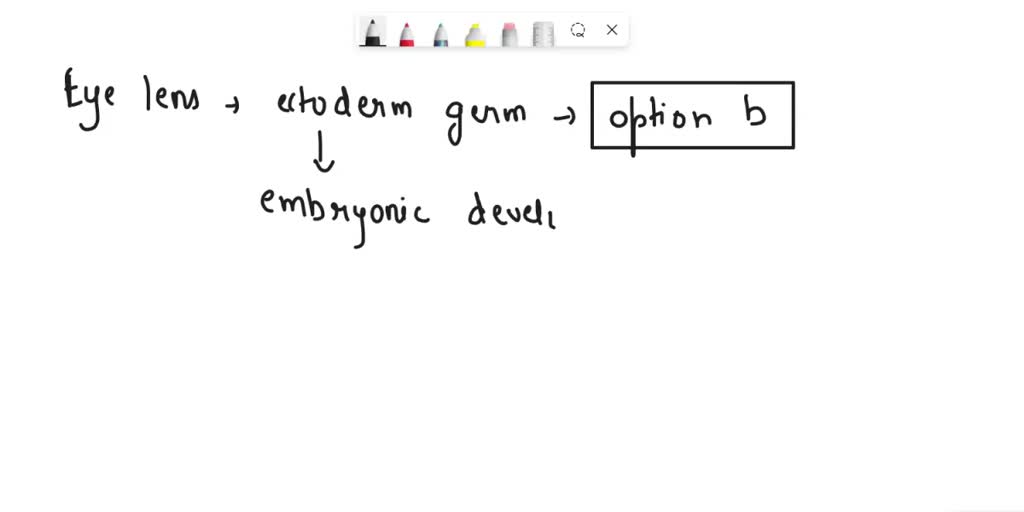 Eye lens → ectoderm germ → option b
↓
embryonic devel